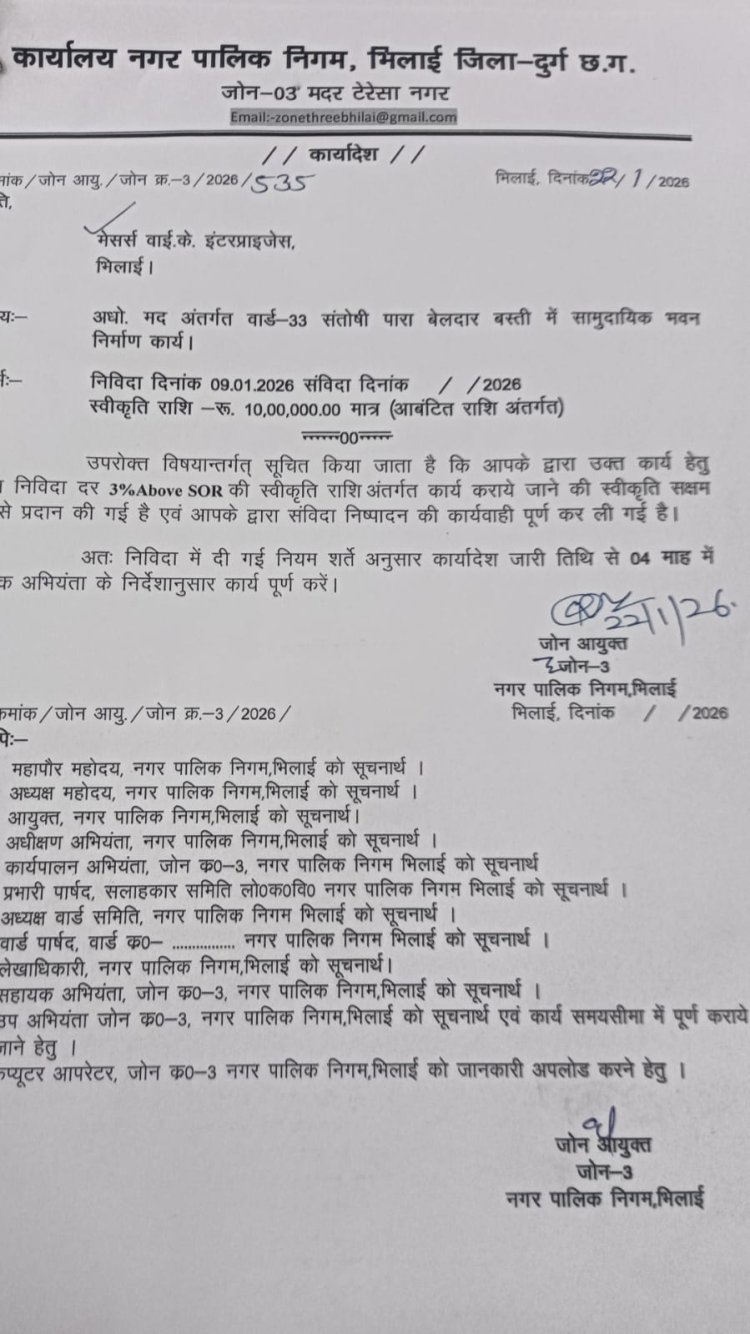 कार्यालय नगर पालिक निगम, भिलाई जिला–दुर्ग छ.ग.
जोन–03 मदर टेरेसा नगर
Email:-zonethreebhilai@gmail.com
// कार्यादेश //
/जोन आयु./जोन क्र.–3/2026/535 भिलाई, दिनांक 22/1/2026
मेसर्स वाई.के. इंटरप्राइजेस,
भिलाई।
अधो. मद अंतर्गत वार्ड–33 संतोषी पारा बेलदार बस्ती में सामुदायिक भवन
निर्माण कार्य।
निविदा दिनांक 09.01.2026 संविदा दिनांक / /2026
स्वीकृति राशि –रू. 10,00,000.00 मात्र (आबंटित राशि अंतर्गत)
00
उपरोक्त विषयान्तर्गत् सूचित किया जाता है कि आपके द्वारा उक्त कार्य हेतु
निविदा दर 3%Above SOR की स्वीकृति राशि अंतर्गत कार्य कराये जाने की स्वीकृति सक्षम
से प्रदान की गई है एवं आपके द्वारा संविदा निष्पादन की कार्यवाही पूर्ण कर ली गई है।
अतः निविदा में दी गई नियम शर्ते अनुसार कार्यादेश जारी तिथि से 04 माह में
अभियंता के निर्देशानुसार कार्य पूर्ण करें।
22/1/26
जोन आयुक्त
जोन–3
नगर पालिक निगम,भिलाई
/जोन आयु./जोन क्र.–3/2026/ भिलाई, दिनांक / /2026
महापौर महोदय, नगर पालिक निगम,भिलाई को सूचनार्थ ।
अध्यक्ष महोदय, नगर पालिक निगम,भिलाई को सूचनार्थ ।
आयुक्त, नगर पालिक निगम,भिलाई को सूचनार्थ।
अधीक्षण अभियंता, नगर पालिक निगम,भिलाई को सूचनार्थ ।
कार्यपालन अभियंता, जोन क0–3, नगर पालिक निगम भिलाई को सूचनार्थ
प्रभारी पार्षद, सलाहकार समिति लो0क0वि0 नगर पालिक निगम भिलाई को सूचनार्थ ।
अध्यक्ष वार्ड समिति, नगर पालिक निगम भिलाई को सूचनार्थ ।
वार्ड पार्षद, वार्ड क0– ................ नगर पालिक निगम भिलाई को सूचनार्थ ।
लेखाधिकारी, नगर पालिक निगम,भिलाई को सूचनार्थ।
सहायक अभियंता, जोन क0–3, नगर पालिक निगम,भिलाई को सूचनार्थ ।
उप अभियंता जोन क0–3, नगर पालिक निगम,भिलाई को सूचनार्थ एवं कार्य समयसीमा में पूर्ण कराये
जाने हेतु ।
आपरेटर, जोन क0–3 नगर पालिक निगम,भिलाई को जानकारी अपलोड करने हेतु ।
जोन आयुक्त
जोन–3
नगर पालिक निगम,भिलाई